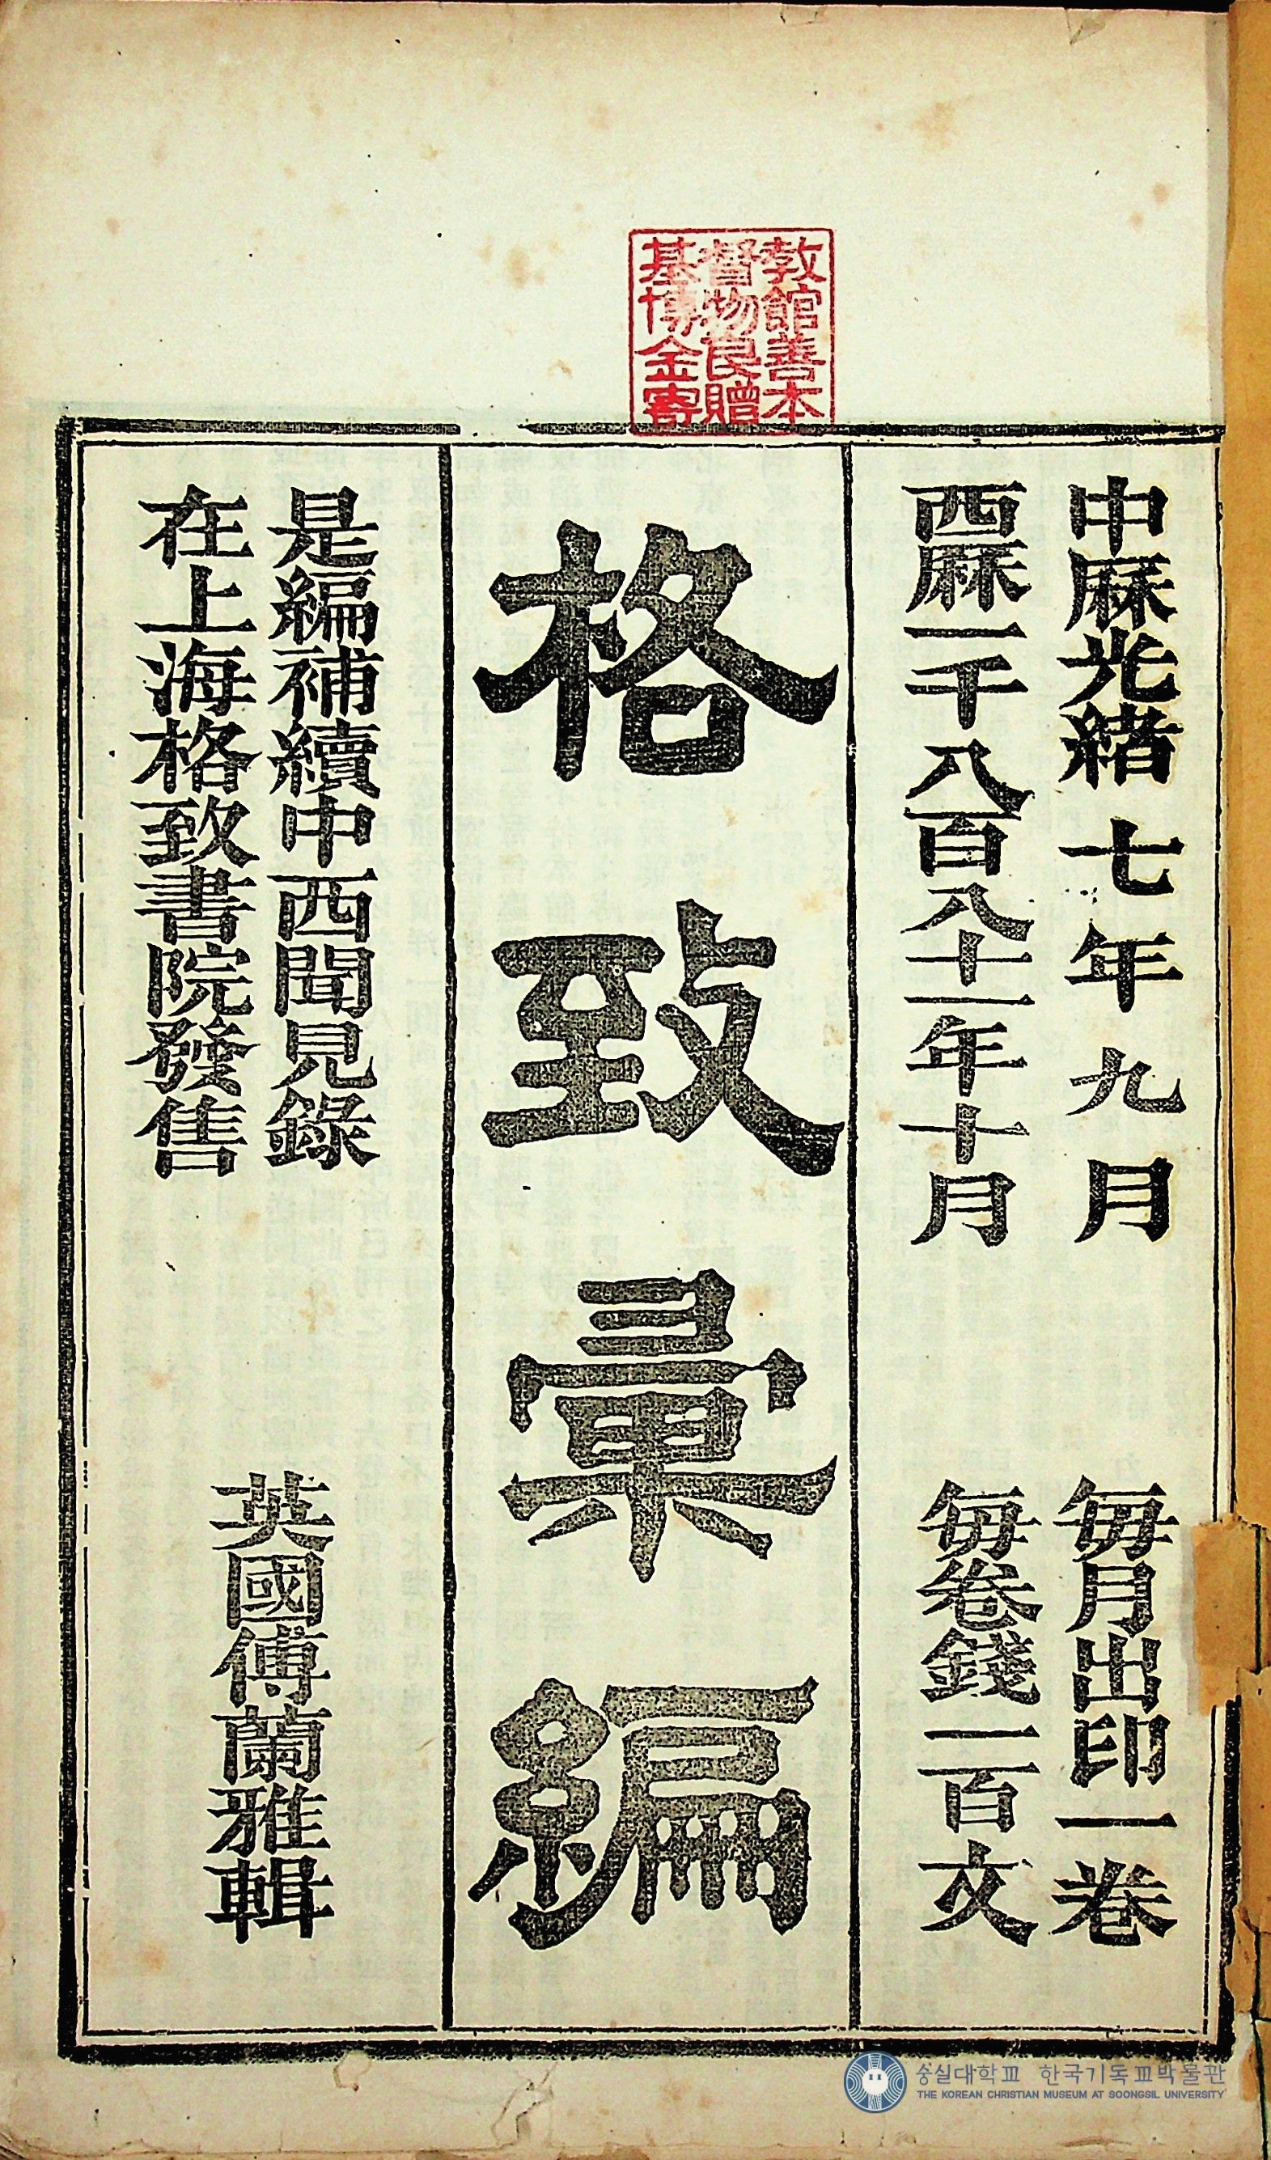 基督教
博物館
金良善
寄贈本
中厤光緒七年九月
每月出印一卷
西厤一千八百八十一年十月
每卷錢一百文
格致彙編
是編補續中西聞見錄
在上海格致書院發售
英國傅蘭雅輯
숭실대학교 한국기독교박물관
THE KOREAN CHRISTIAN MUSEUM AT SOONGSIL UNIVERSITY